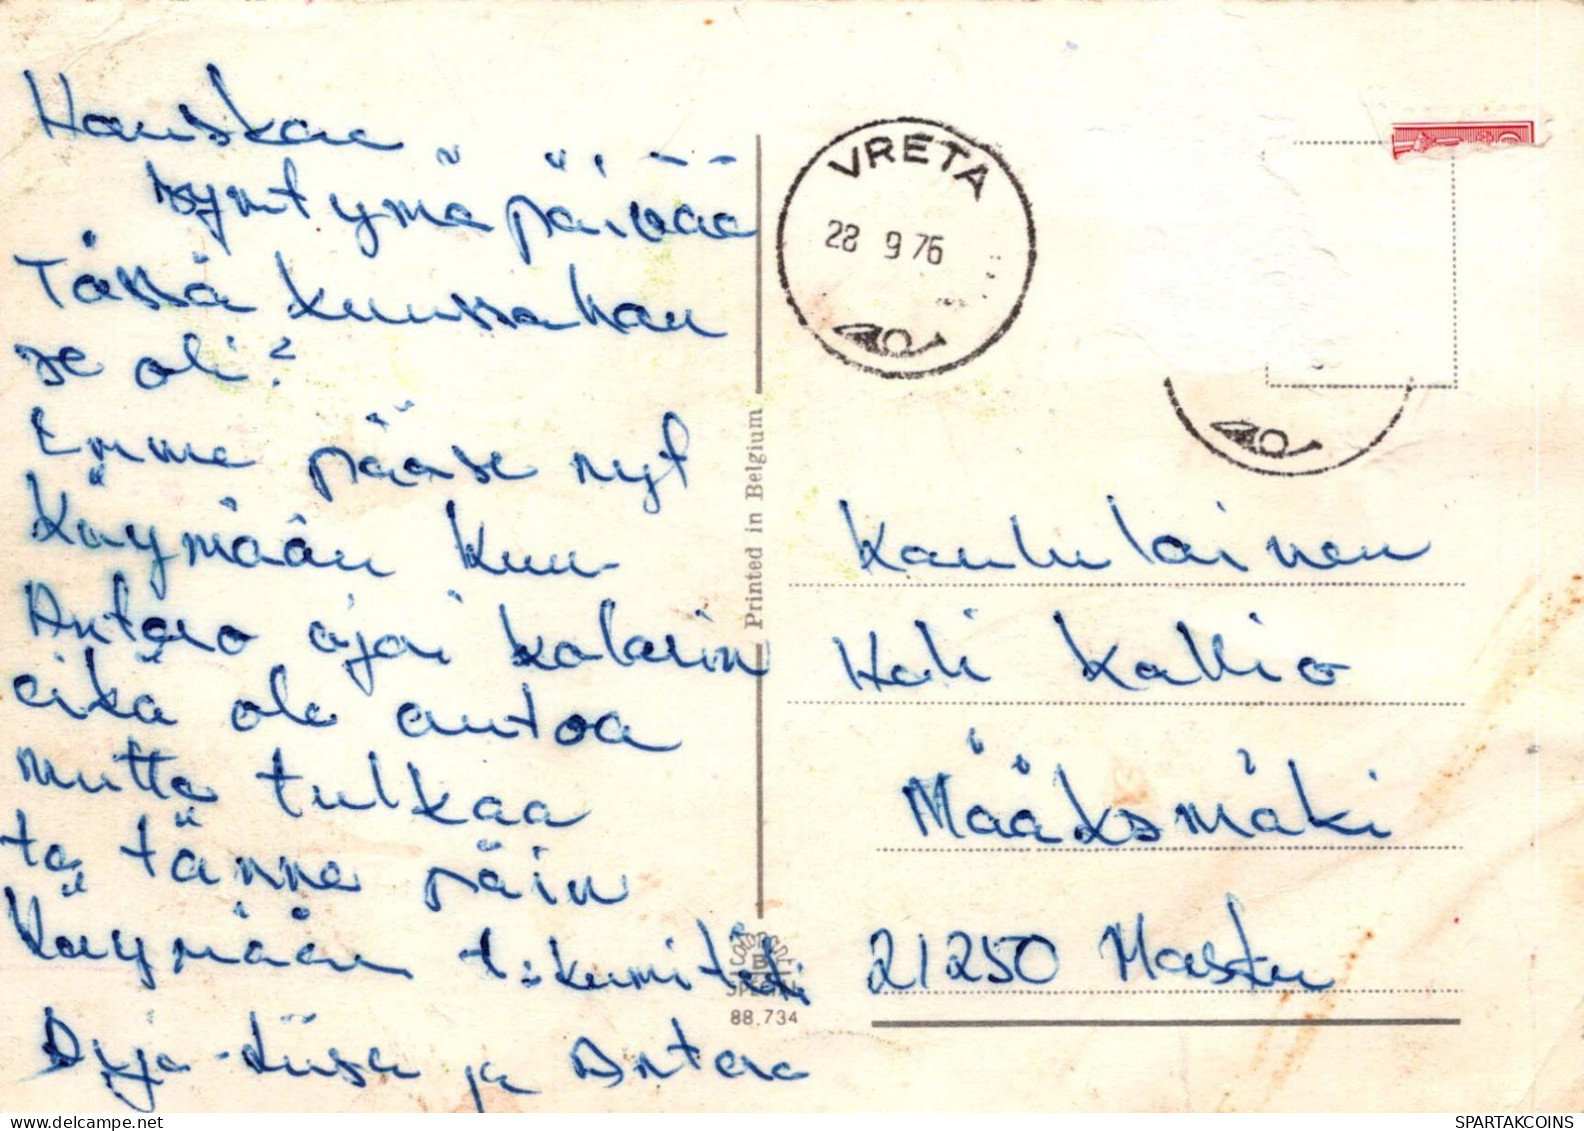 Hauskan
syntymä päivää
Tässä kuussahan
se oli?
Emme pääse nyt
Käymään kun
Antero ajoi kolarin
eikä ole autoa
mutta tulkaa
te tänne päin
Käymään t. kummitäti
Arja-Liisa ja Antero
VRETA
28 9 76
Printed in Belgium
Colorprint
B
SPECIAL
88.734
Kaululainen
Heli Kallio
Määksmäki
21250 Masku
SPARTAKCOINS